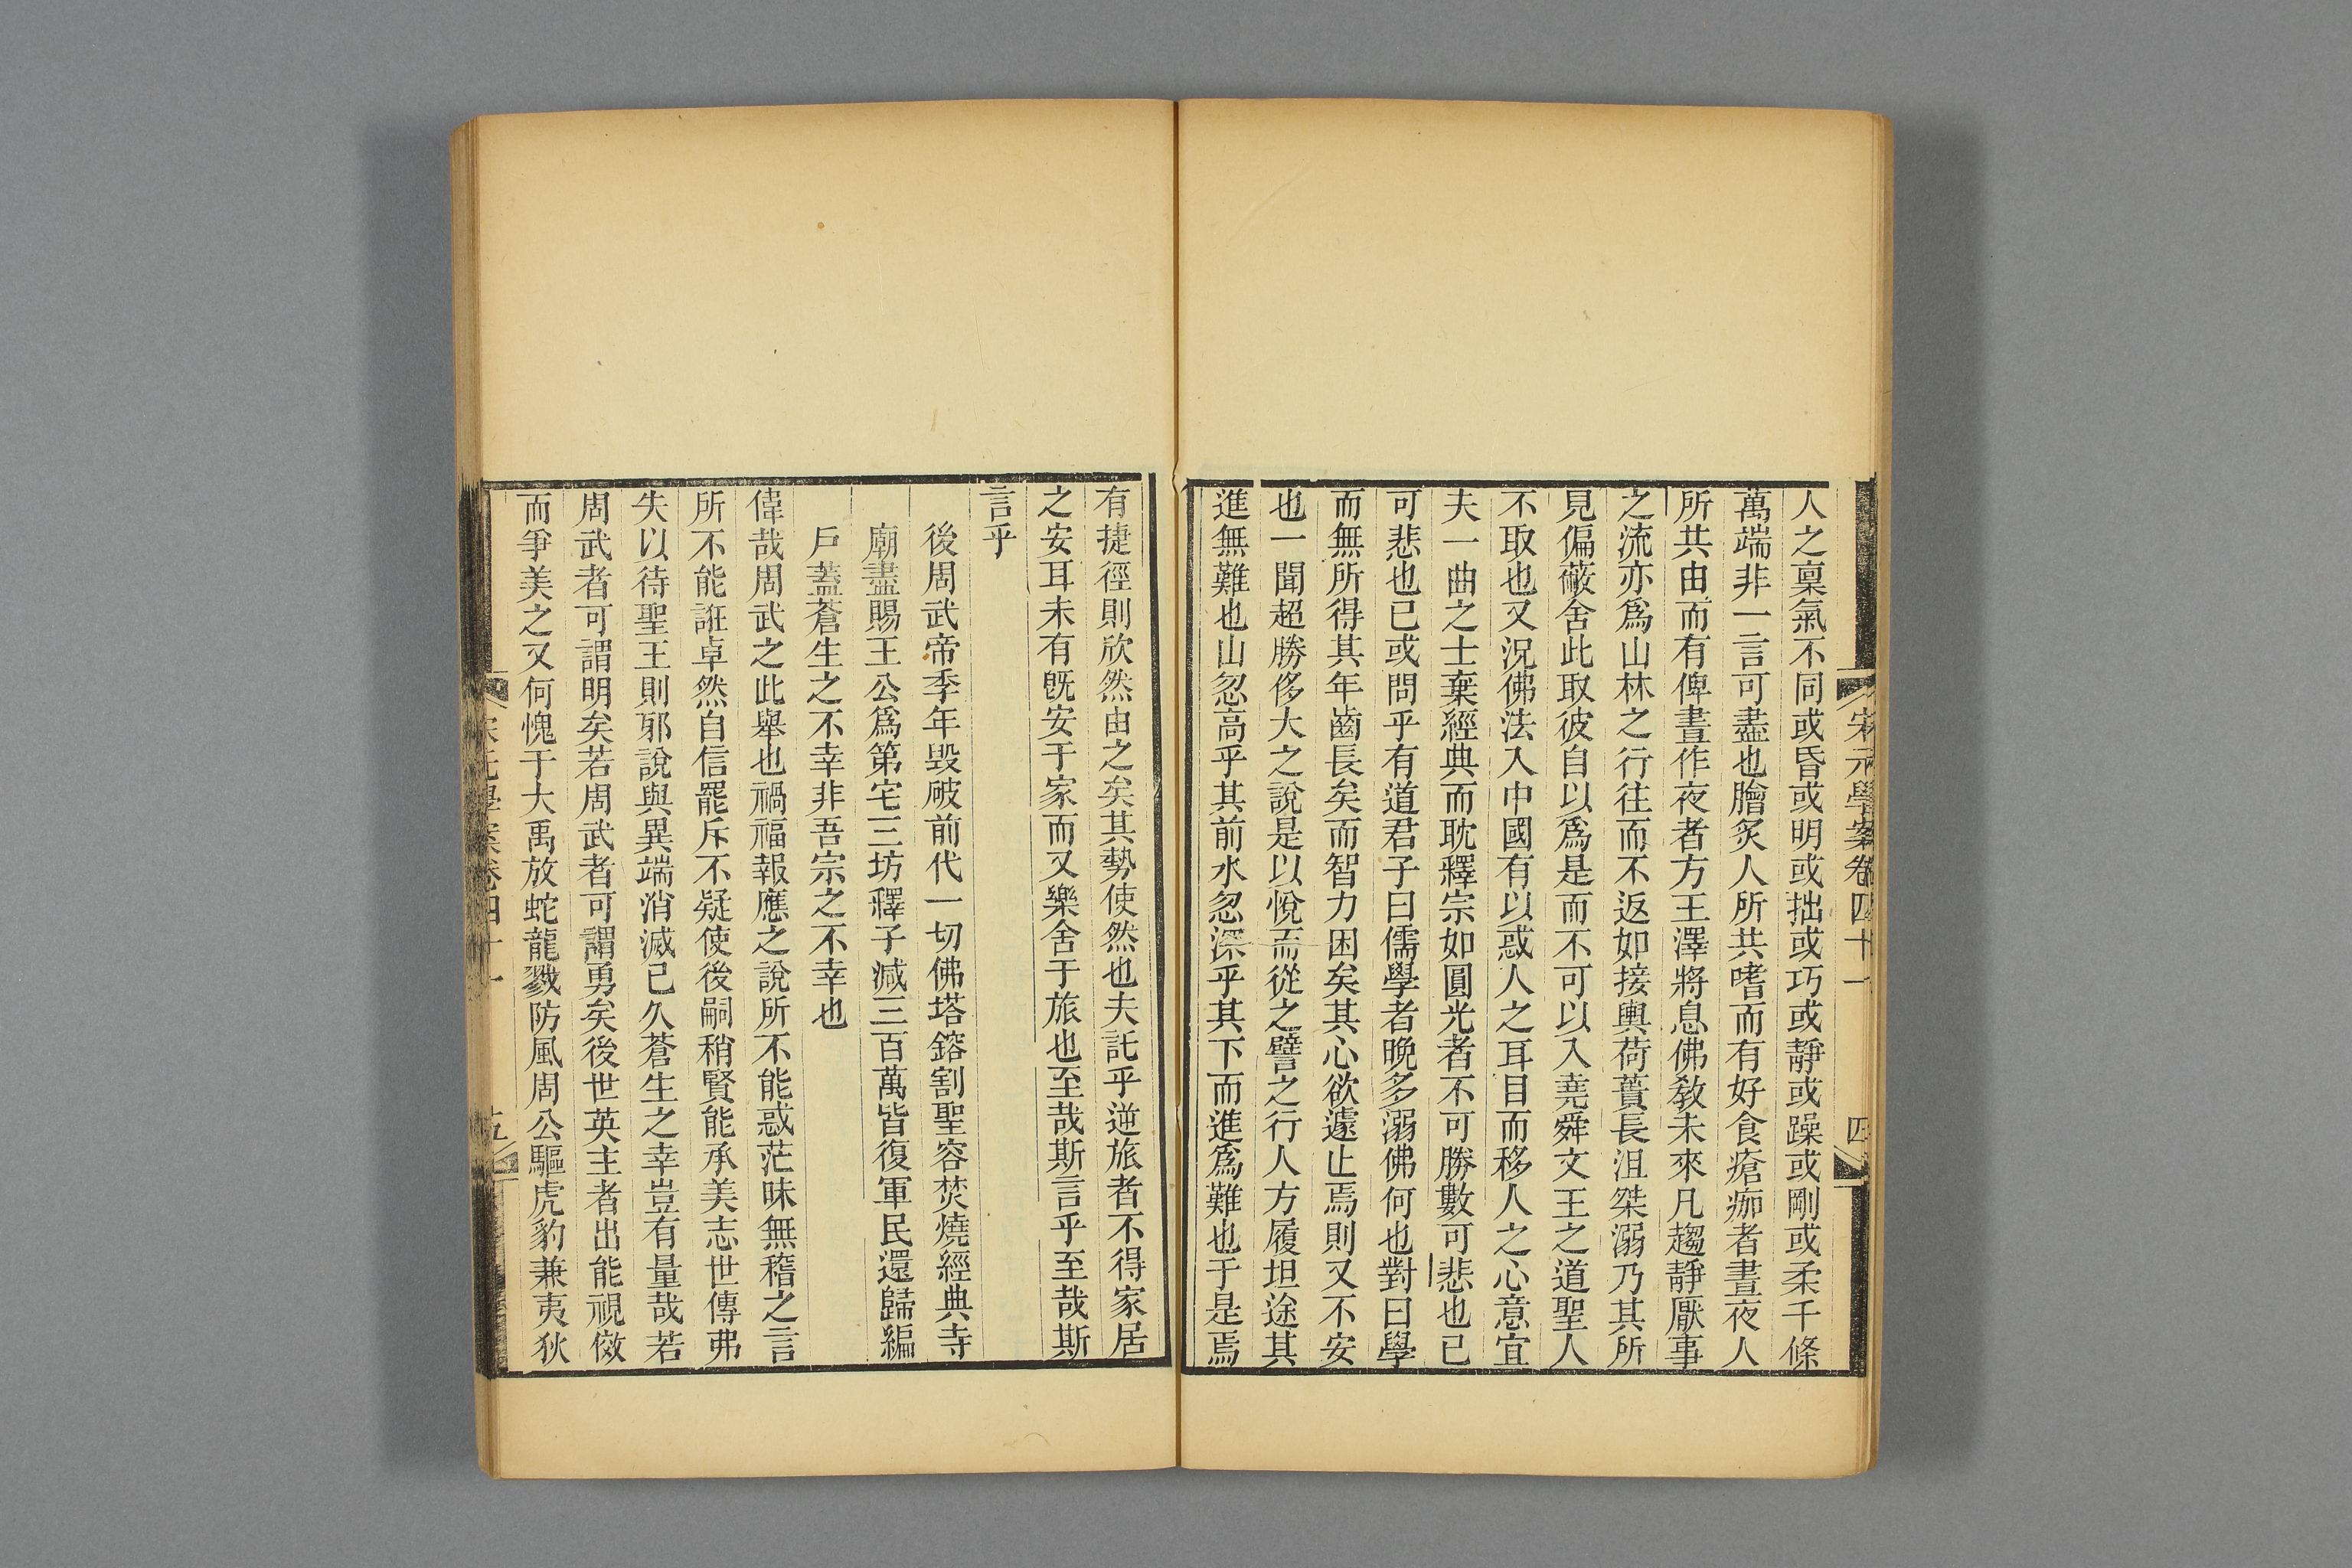 宋元學案卷四十一
四
人之稟氣不同或昏或明或拙或巧或靜或躁或剛或柔千條
萬端非一言可盡也膾炙人所共嗜而有好食瘡痂者晝夜人
所共由而有俾晝作夜者方王澤將息佛敎未來凡趨靜厭事
之流亦爲山林之行往而不返如接輿荷蕢長沮桀溺乃其所
見偏蔽舍此取彼自以爲是而不可以入堯舜文王之道聖人
不取也又況佛法入中國有以惑人之耳目而移人之心意宜
夫一曲之士棄經典而耽釋宗如圓光者不可勝數可悲也已
可悲也已或問乎有道君子曰儒學者晩多溺佛何也對曰學
而無所得其年齒長矣而智力困矣其心欲遽止焉則又不安
也一聞超勝侈大之說是以悅而從之譬之行人方履坦途其
進無難也山忽高乎其前水忽深乎其下而進爲難也于是焉
有捷徑則欣然由之矣其勢使然也夫託乎逆旅者不得家居
之安耳未有旣安于家而又樂舍于旅也至哉斯言乎至哉斯
言乎
後周武帝季年毀破前代一切佛塔鎔割聖容焚燒經典寺
廟盡賜王公爲第宅三坊釋子減三百萬皆復軍民還歸編
戶蓋蒼生之不幸非吾宗之不幸也
偉哉周武之此舉也禍福報應之說所不能惑茫昧無稽之言
所不能誑卓然自信罷斥不疑使後嗣稍賢能承美志世傳弗
失以待聖王則邪說與異端消滅已久蒼生之幸豈有量哉若
周武者可謂明矣若周武者可謂勇矣後世英主者出能視傚
而爭美之又何愧于大禹放蛇龍戮防風周公驅虎豹兼夷狄
宋元學案卷四十一
五